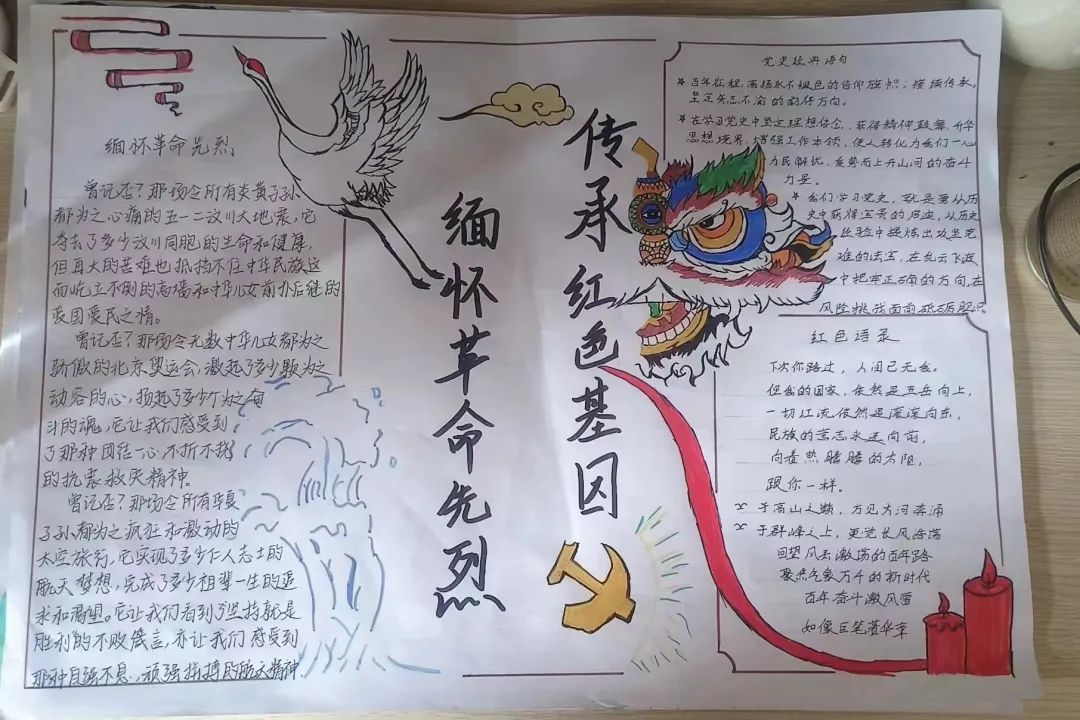 缅怀革命先烈
曾记否?那场令所有炎黄子孙
都为之心痛的五一二汶川大地震,它
夺去了多少汶川同胞的生命和健康,
但再大的苦难也抵挡不住中华民族这
面屹立不倒的高墙和中华儿女前仆后继的
爱国爱民之情。
曾记否?那场令无数中华儿女都为之
骄傲的北京奥运会,激起了多少颗为之
动容的心,扬起了多少个为之奋
斗的魂,它让我们感受到
了那种团结一心,不折不挠
的抗震救灾精神。
曾记否?那场令所有华夏
子孙都为之疯狂和激动的
太空旅行,它实现了多少仁人志士的
航天梦想,完成了多少祖辈一生的追
求和渴望。它让我们看到了坚持就是
胜利的不败箴言,亦让我们感受到
那种自强不息,顽强拼搏的航天精神
缅怀革命先烈
传承红色基因
党史经典语句
百年征程,高扬永不褪色的信仰旗帜;接续传承,
坚定矢志不渝的前行方向。
在学习党史中坚定理想信念、获得精神鼓舞、升华
思想境界、增强工作本领,使人转化为我们一心
为民解忧,乘势而上开山河的奋斗
力量。
我们学习党史,就是要从历
史中获得宝贵的启迪,从历史
经验中提炼出攻坚克
难的法宝,在乱云飞渡
中把牢正确的方向,在
风险挑战面前砥砺胆识
红色语录
下次你路过,人间已无我。
但我的国家,依然是五岳向上,
一切江流依然是滚滚向东,
民族的意志永远向前,
向着热腾腾的太阳,
跟你一样。
于高山之巅,方见大河奔涌
于群峰之上,更觉长风浩荡
回望风云激荡的百年路
聚焦气象万千的新时代
百年奋斗激风雷
如像巨笔著华章